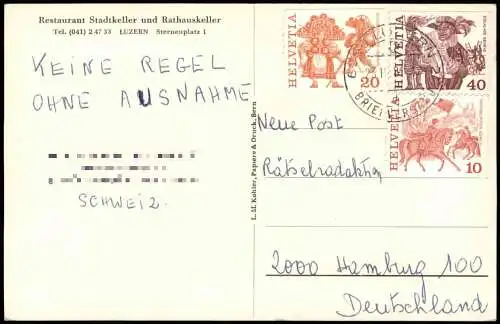 Restaurant Stadtkeller und Rathauskeller
Tel. (041) 2 47 33 LUZERN Sternenplatz 1
KEINE REGEL
OHNE AUSNAHME
SCHWEIZ.
L. M. Kohler, Papiere & Druck, Bern
HELVETIA
20
HELVETIA
40
HELVETIA
10
Neue Post
Rätselredaktion
2000 Hamburg 100
Deutschland